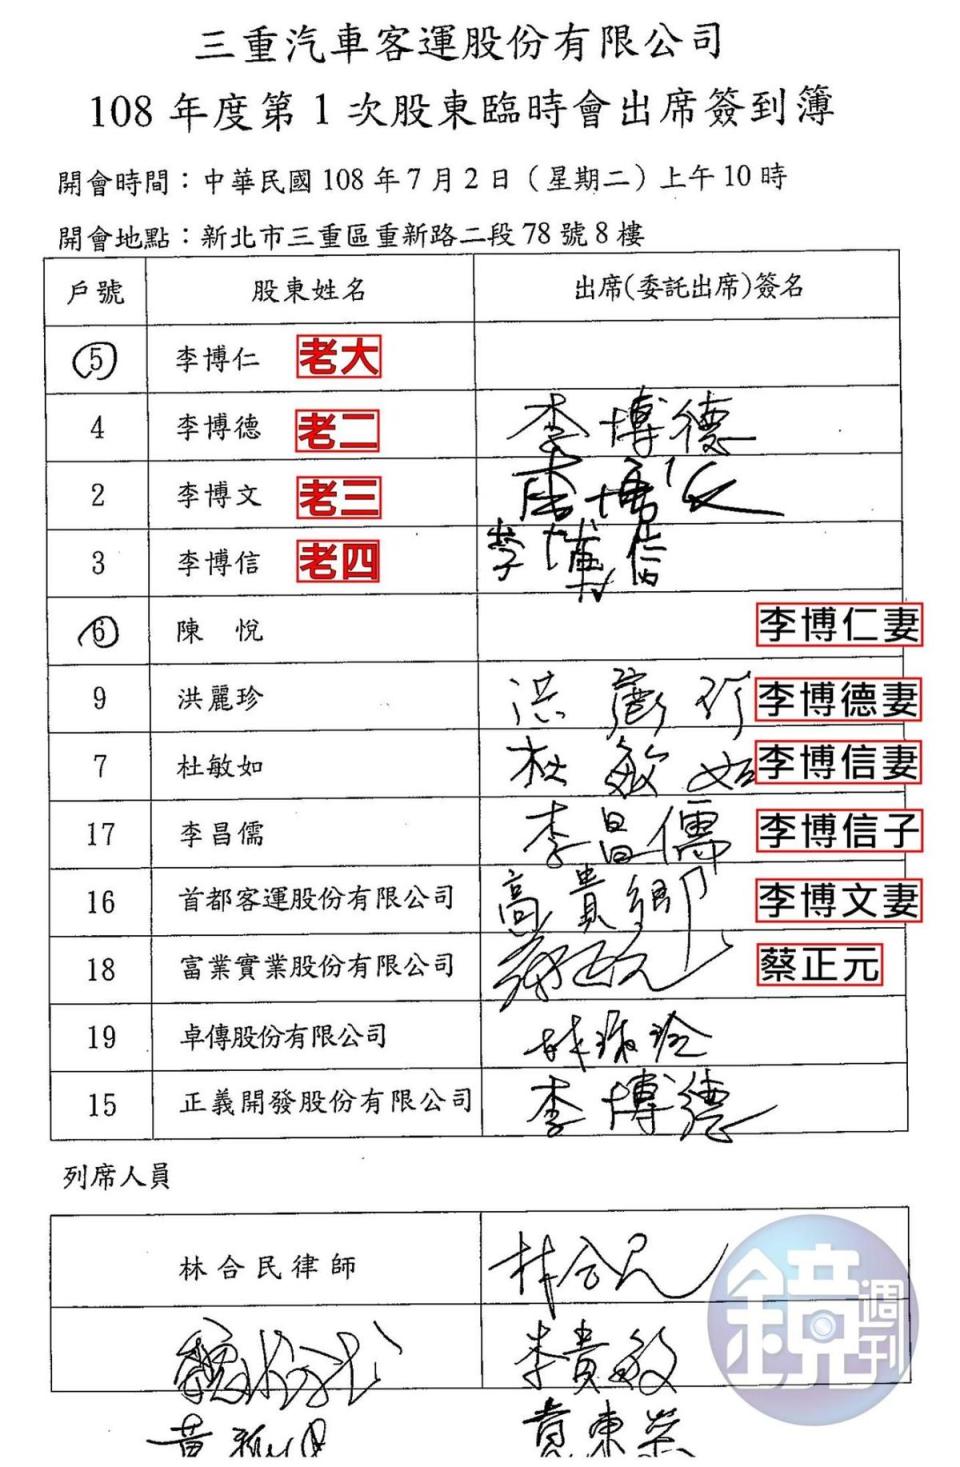 三重汽車客運股份有限公司
108 年度第 1 次股東臨時會出席簽到簿
開會時間：中華民國 108 年 7 月 2 日（星期二）上午 10 時
開會地點：新北市三重區重新路二段 78 號 8 樓
戶號 股東姓名 出席(委託出席)簽名
5 李博仁 老大
4 李博德 老二 李博德
2 李博文 老三 李博文
3 李博信 老四 李博信
6 陳 悅 李博仁妻
9 洪麗珍 洪麗珍 李博德妻
7 杜敏如 杜敏如 李博信妻
17 李昌儒 李昌儒 李博信子
16 首都客運股份有限公司 高貴卿 李博文妻
18 富業實業股份有限公司 蔡正元
19 卓傳股份有限公司
15 正義開發股份有限公司 李博德
列席人員
林合民律師 林合民
李貴敏
黃東榮
鏡週刊